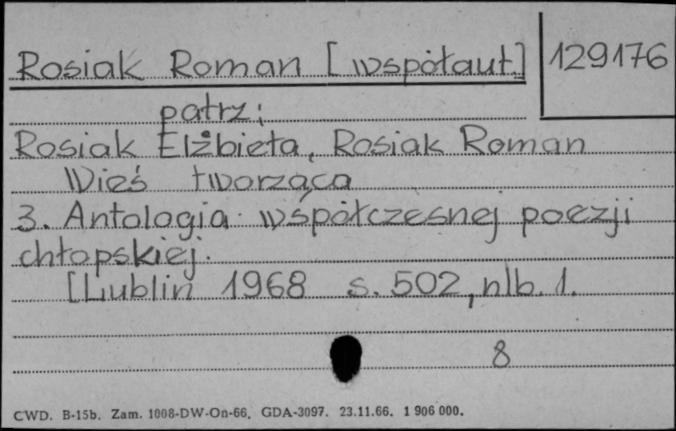 Rosiak Roman [współaut.]
129176
patrz:
Rosiak Elżbieta, Rosiak Roman
Wieś tworząca
3. Antologia współczesnej poezji
chłopskiej.
[Lublin 1968 s. 502, nlb. 1.
8
CWD. B-15b. Zam. 1008-DW-On-66. GDA-3097. 23.11.66. 1 906 000.